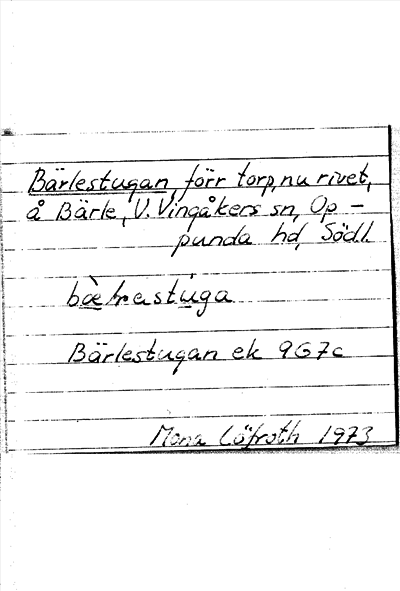 Bärlestugan, förr torp, nu rivet,
å Bärle, V. Vingåkers sn, Op-
punda hd, Södl.
Bärlestugan ek 9G7c
Mona Löfroth 1973